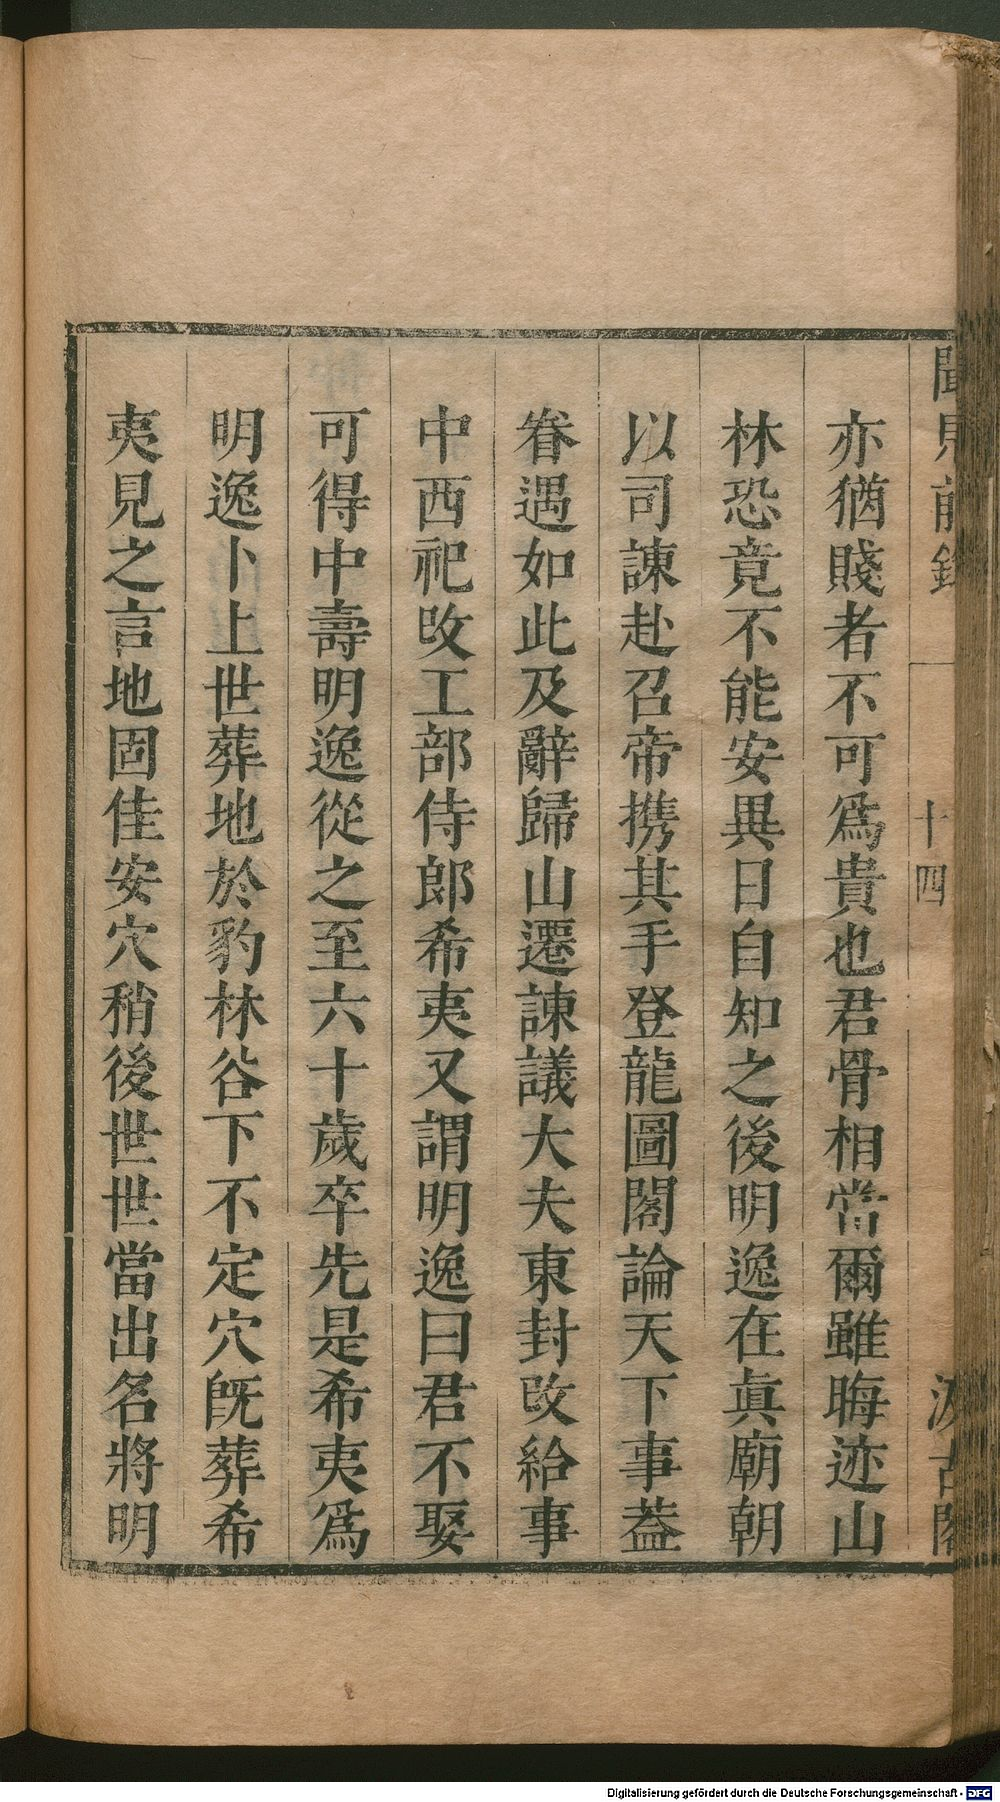 聞見前錄
十四
汲古閣
亦猶賤者不可爲貴也君骨相當爾雖晦迹山
林恐竟不能安異日自知之後明逸在眞廟朝
以司諫赴召帝携其手登龍圖閣論天下事葢
眷遇如此及辭歸山遷諫議大夫東封改給事
中西祀改工部侍郎希夷又謂明逸曰君不娶
可得中壽明逸從之至六十歲卒先是希夷爲
明逸卜上世葬地於豹林谷下不定穴旣葬希
夷見之言地固佳安穴稍後世世當出名將明
Digitalisierung gefördert durch die Deutsche Forschungsgemeinschaft - DFG